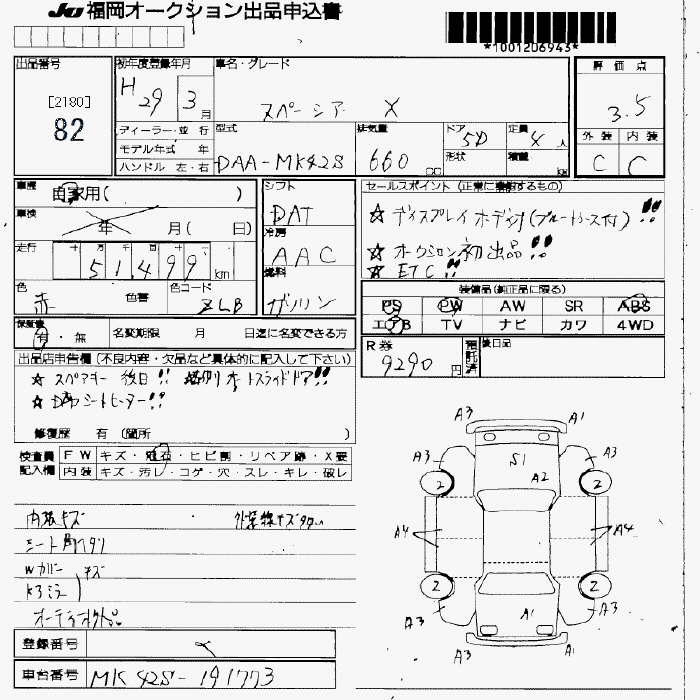 JU 福岡オークション出品申込書
*1001206943*
出品番号
[2180]
82
初年度登録年月
H 29 3 月
ディーラー・並 行
モデル年式 年
ハンドル 左・右
車名・グレード
スペーシア X
型式
DAA-MK42S
排気量
660 CC
ドア 5D
形状
定員 4 人
積載 kg
評 価 点
3.5
外 装 内 装
C C
車歴 自家用( )
車検 年 月( 日)
走行 十 万 千 百 十 一
51,499 km
色 赤 色替
色コード ZLB
シフト
DAT
冷房
AAC
燃料
ガソリン
セールスポイント (正常に機能するもの)
☆ ディスプレイオーディオ(ブルートゥース付)!!
☆ オークション初出品!!
☆ ETC!!
装備品(純正品に限る)
PS PW AW SR ABS
エアB TV ナビ カワ 4WD
保証書
有・無 名変期限 月 日迄に名変できる方
R券
9290 円
預託済
後日品
出品店申告欄 (不良内容・欠品など具体的に記入して下さい)
☆ スペアキー 後日!! 左側オートスライドドア!!
☆ D席シートヒーター!!
修復歴 有 (箇所 )
検査員記入欄
FW キズ・飛石・ヒビ割・リペア跡・X要
内装 キズ・汚レ・コゲ・穴・スレ・キレ・破レ
内張キズ
シート角ヘタリ
Wカバー
Kミラー
キズ
オーディオ欠品
A3 A1
A3 S1 A3
A2
2 2
A4 A4
2 2
A3 A1 A3
A3 A1
登録番号
車台番号 MK42S-191773